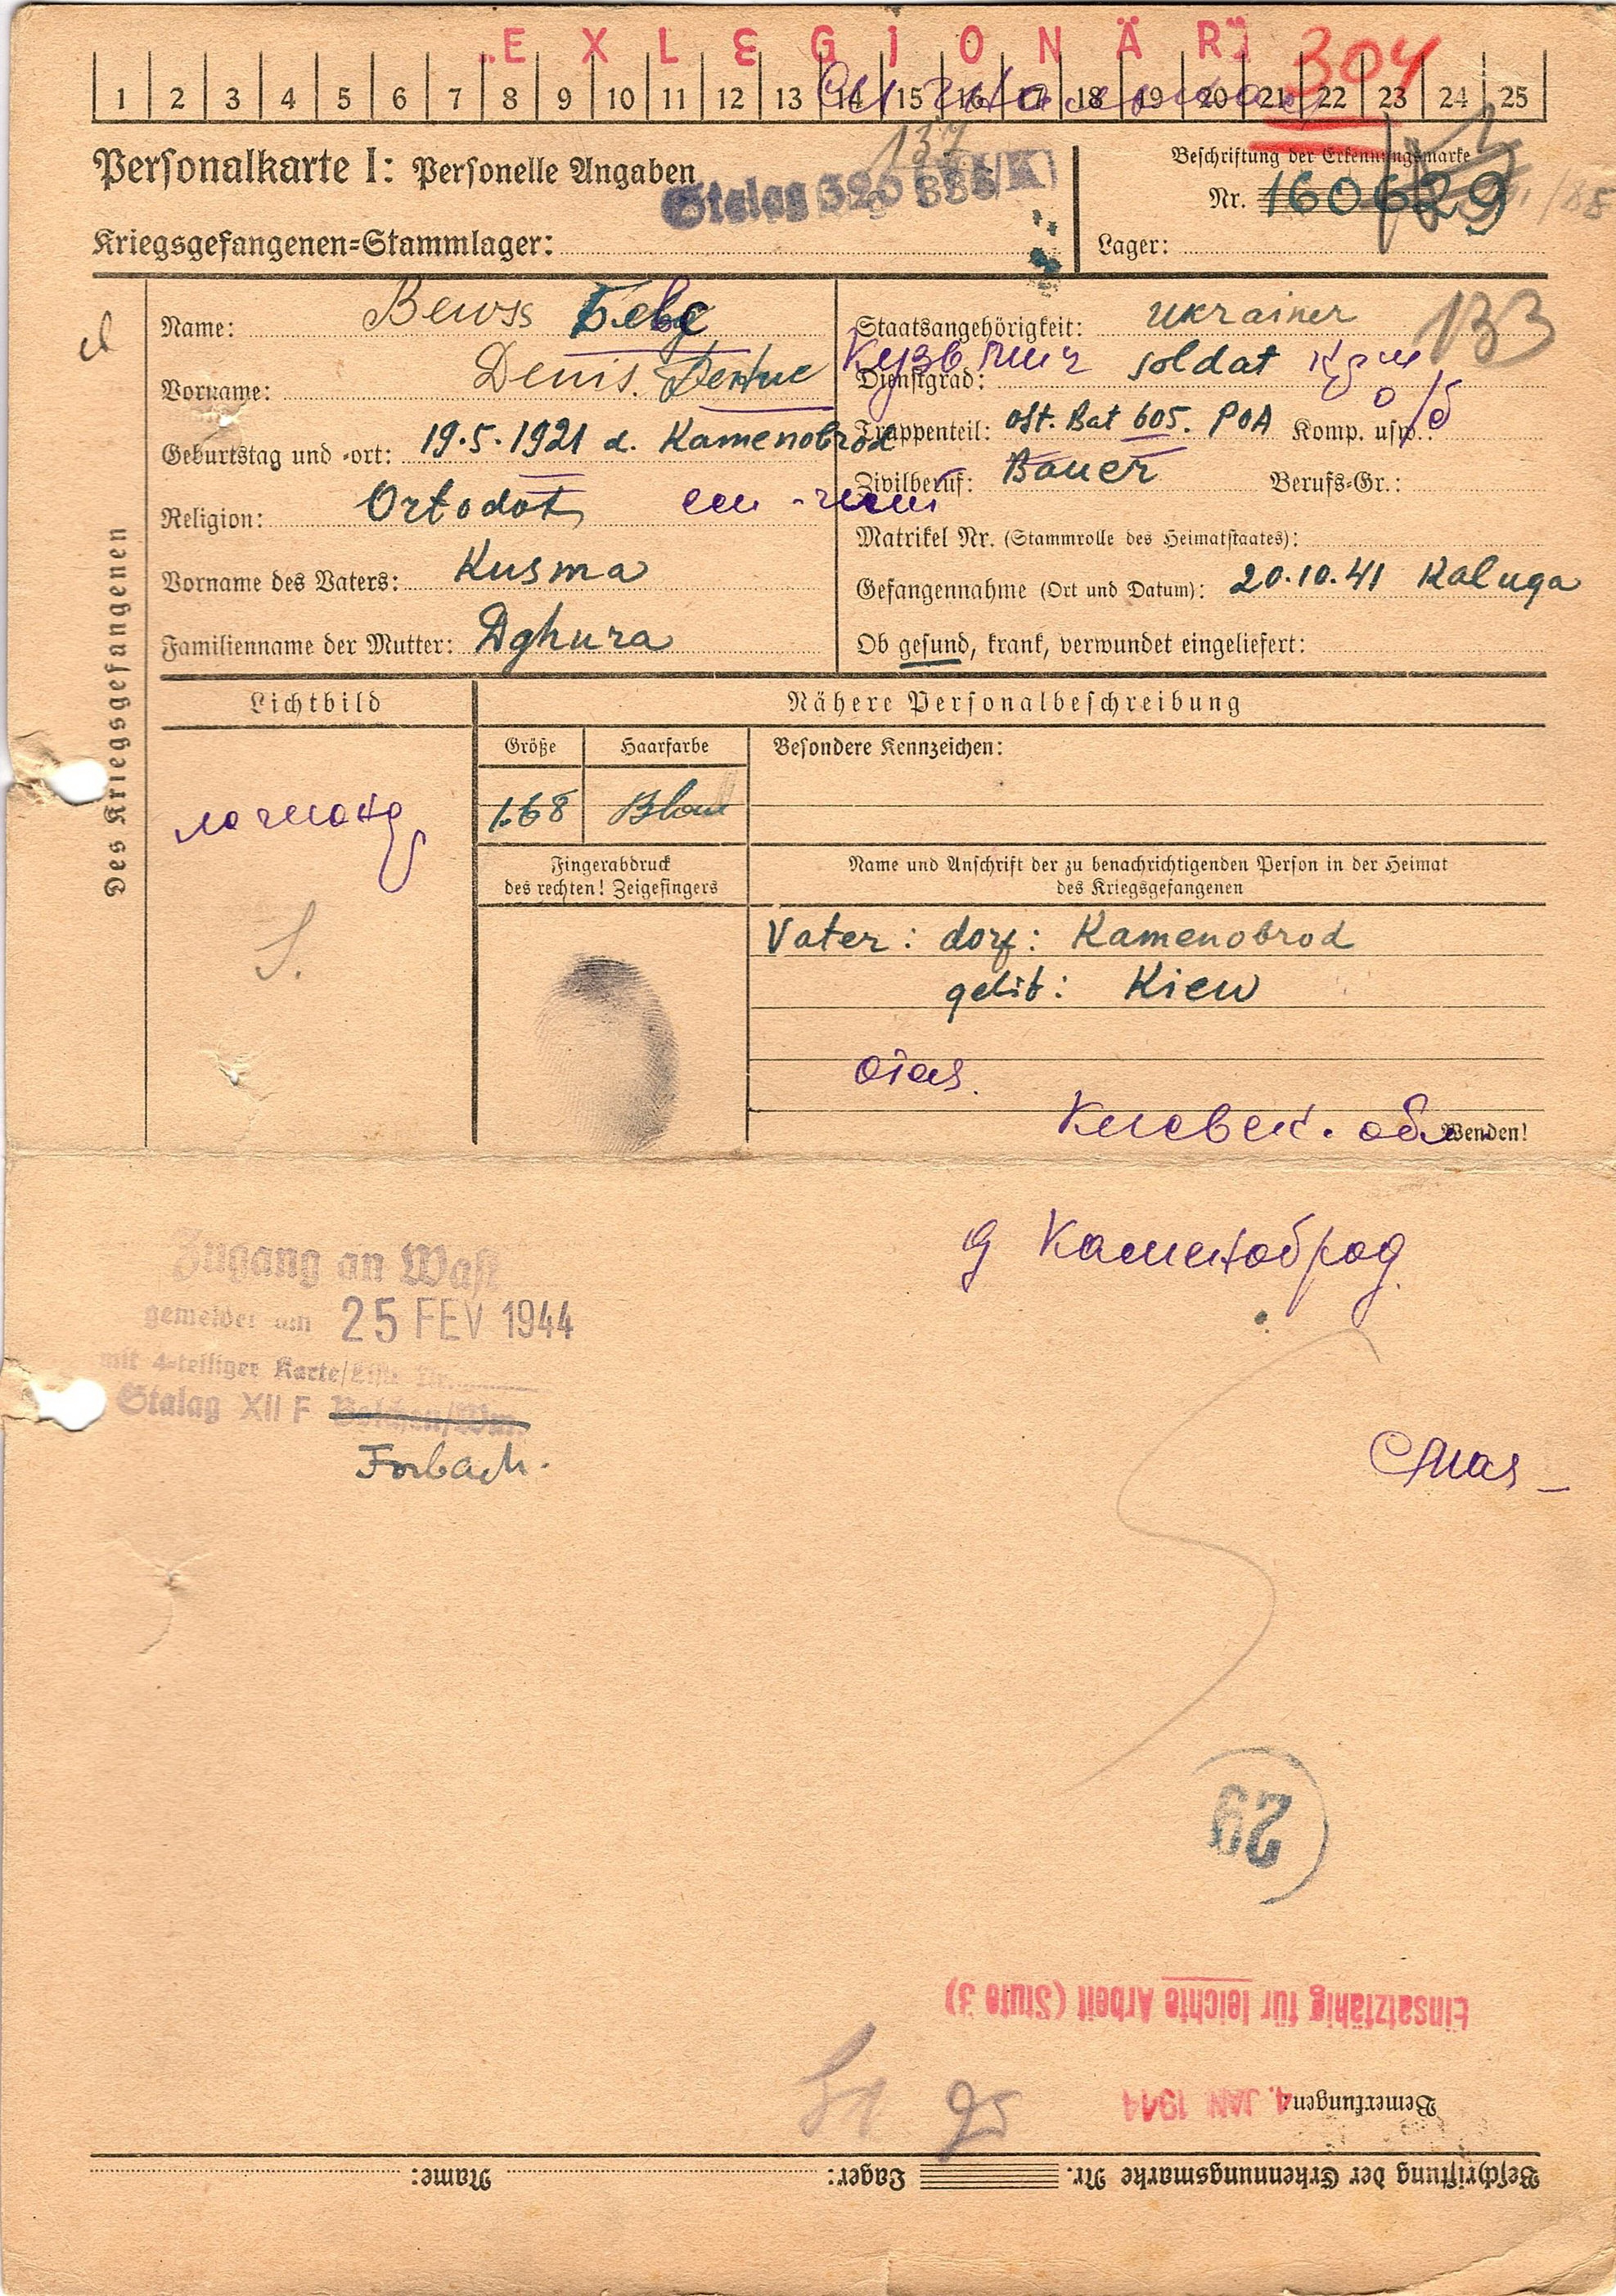 „EXLEGIONÄR"
304
1 2 3 4 5 6 7 8 9 10 11 12 13 14 15 16 17 18 19 20 21 22 23 24 25
137
Personalkarte I: Personelle Angaben
Beschriftung der Erkennungsmarke
Stalag
Nr. 160629
Kriegsgefangenen-Stammlager:
Lager:
Des Kriegsgefangenen
Name: Bewss Бевс
Vorname: Denis. Денис
Geburtstag und -ort: 19.5.1921 d. Kamenobrod
Religion: Ortodot
Vorname des Vaters: Kusma
Familienname der Mutter: Dghura
Staatsangehörigkeit: Ukrainer
133
Кузьмич
Dienstgrad: soldat
Truppenteil: ost. Bat 605. POA Komp. usw.:
Zivilberuf: Bauer Berufs-Gr.:
Matrikel Nr. (Stammrolle des Heimatstaates):
Gefangennahme (Ort und Datum): 20.10.41 Kaluga
Ob gesund, krank, verwundet eingeliefert:
Lichtbild
Nähere Personalbeschreibung
Größe
Haarfarbe
Besondere Kennzeichen:
1.68
Blond
Fingerabdruck
des rechten! Zeigefingers
Name und Anschrift der zu benachrichtigenden Person in der Heimat
des Kriegsgefangenen
Vater: dorf: Kamenobrod
gebit: Kiew
Киевск. обл.
Wenden!
д Каменоброд
Zugang an WASt
gemeldet am 25 FEV 1944
mit 4-teiliger Karte/Liste Nr.
Stalag XII F Bolchen/Wm.
Forbach.
29
Einsatzfähig für leichte Arbeit (Stufe 3)
Bemerkungen:
4. JAN 1944
Beschriftung der Erkennungsmarke Nr. Lager: Name: